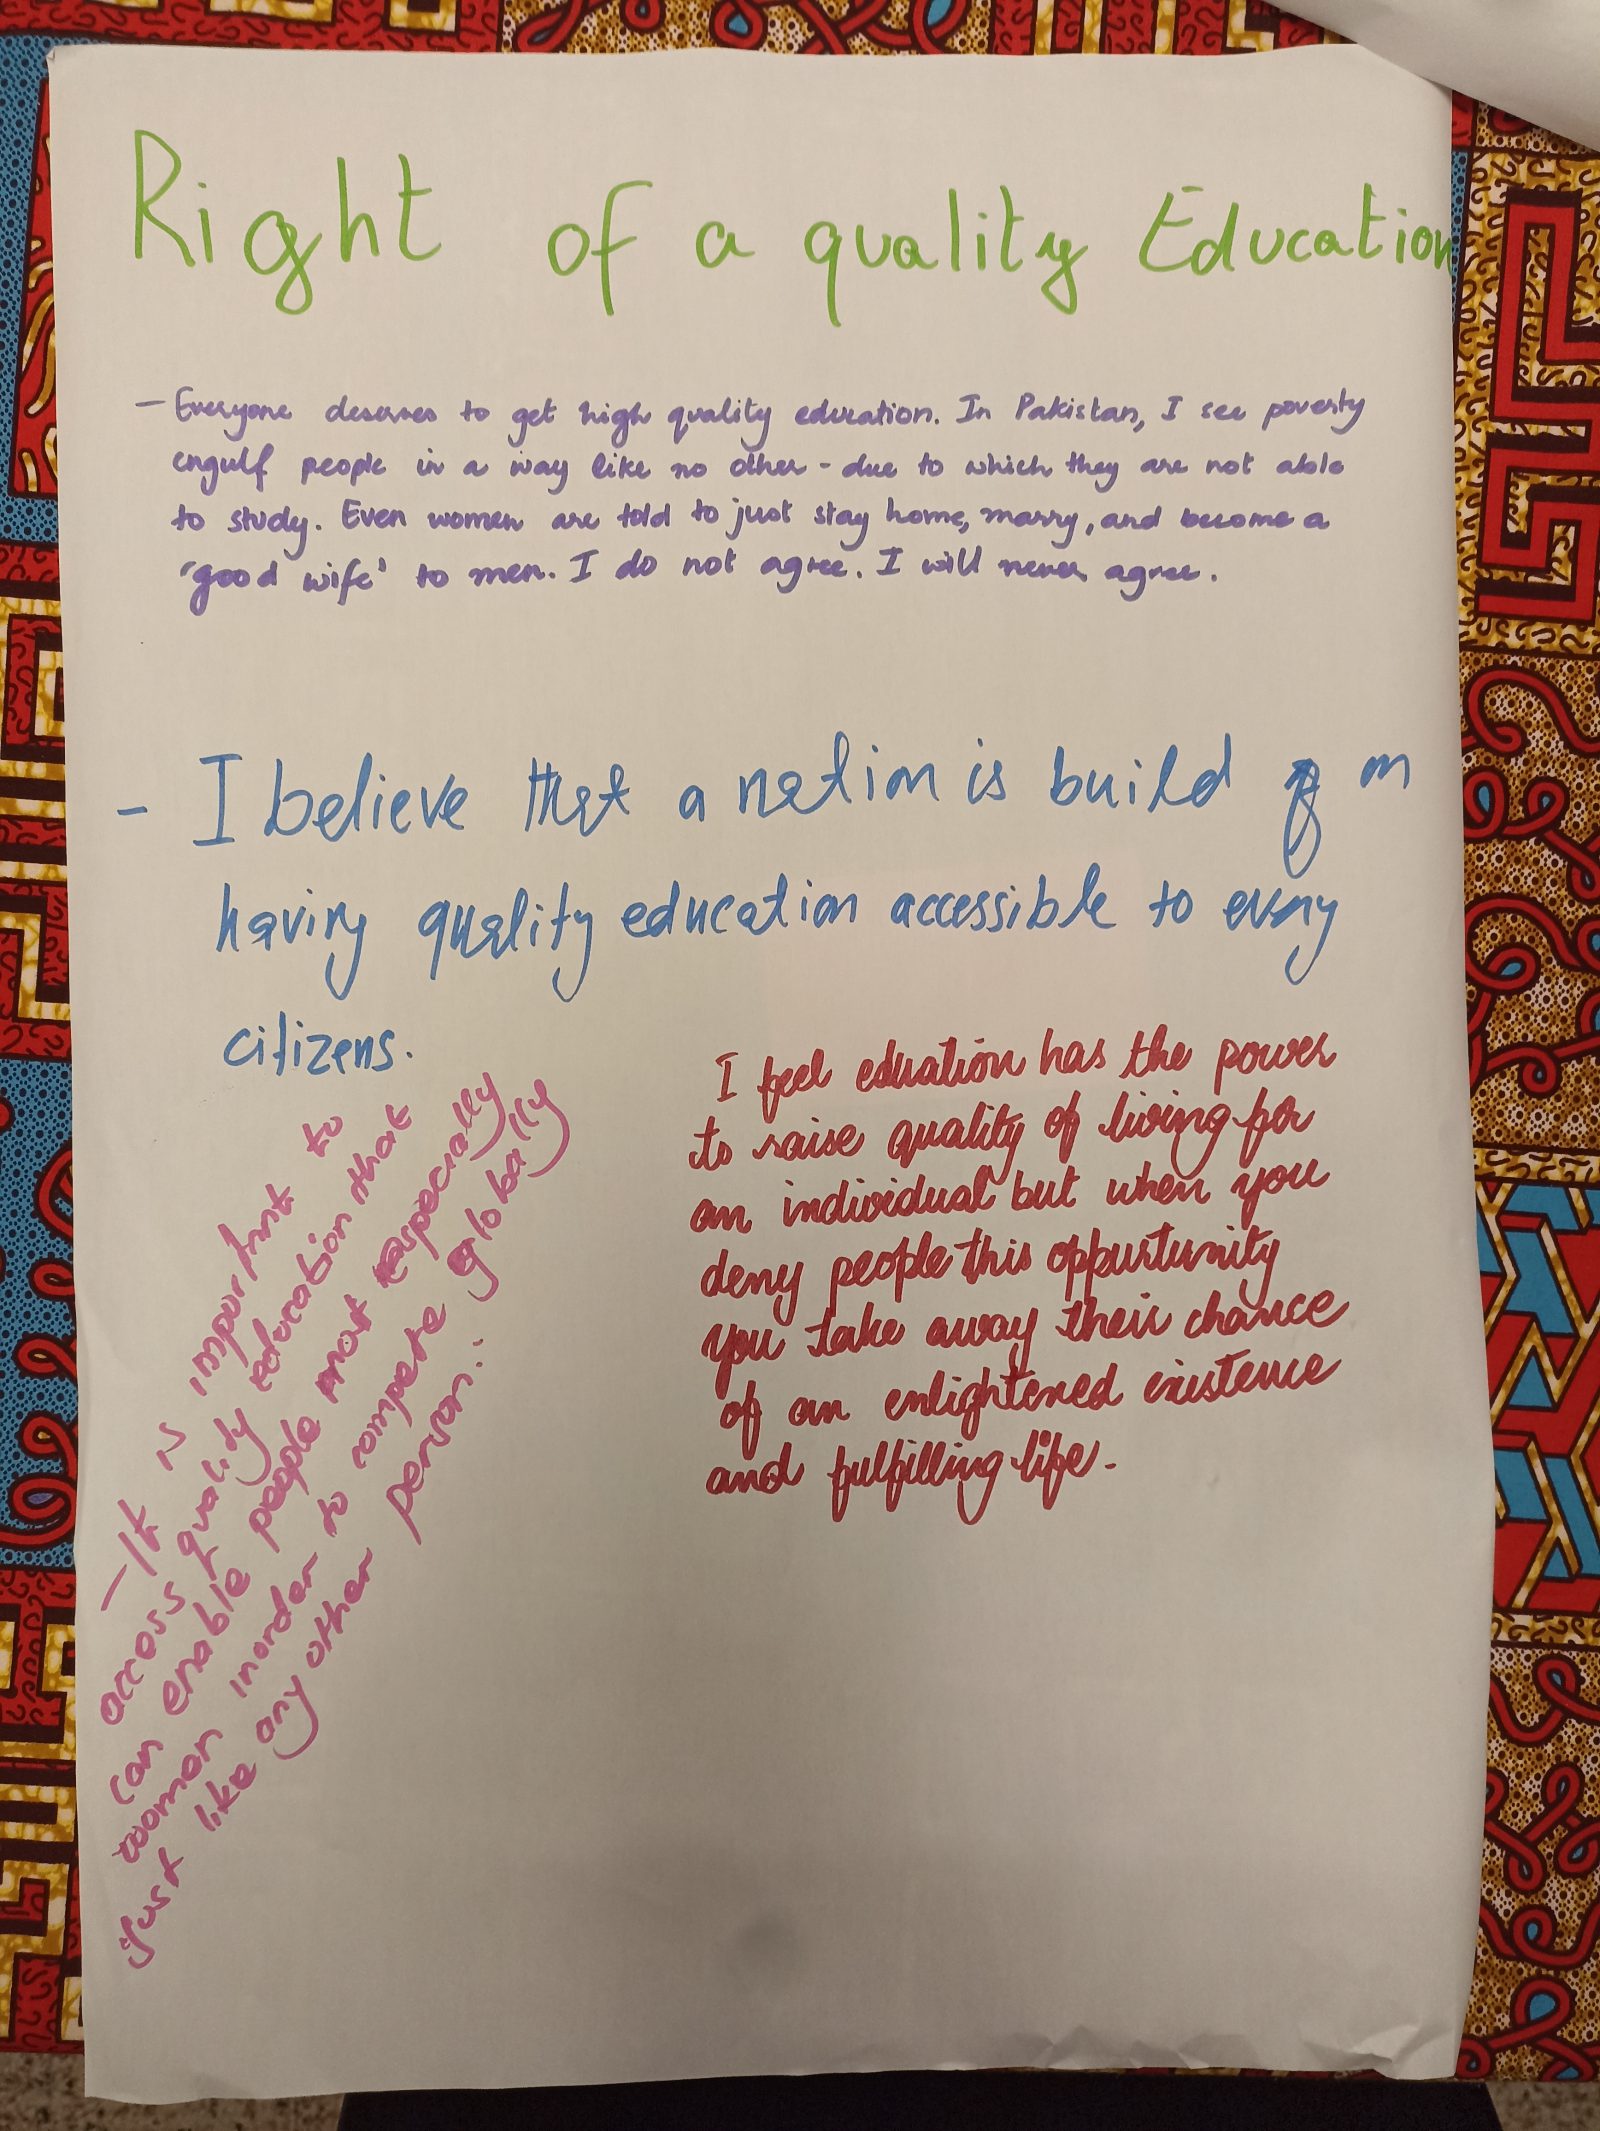 Right of a quality Education
– Everyone deserves to get high quality education. In Pakistan, I see poverty
engulf people in a way like no other - due to which they are not able
to study. Even women are told to just stay home, marry, and become a
'good wife' to men. I do not agree. I will never agree.
- I believe that a nation is build on
having quality education accessible to every
citizens.
I feel eduation has the power
to raise quality of living for
an individual but when you
deny people this oppurtunity
you take away their chance
of an enlightened existence
and fulfilling life.
– It is important to
access quality education that
can enable people most especially
women inorder to compete globally
just like any other person..